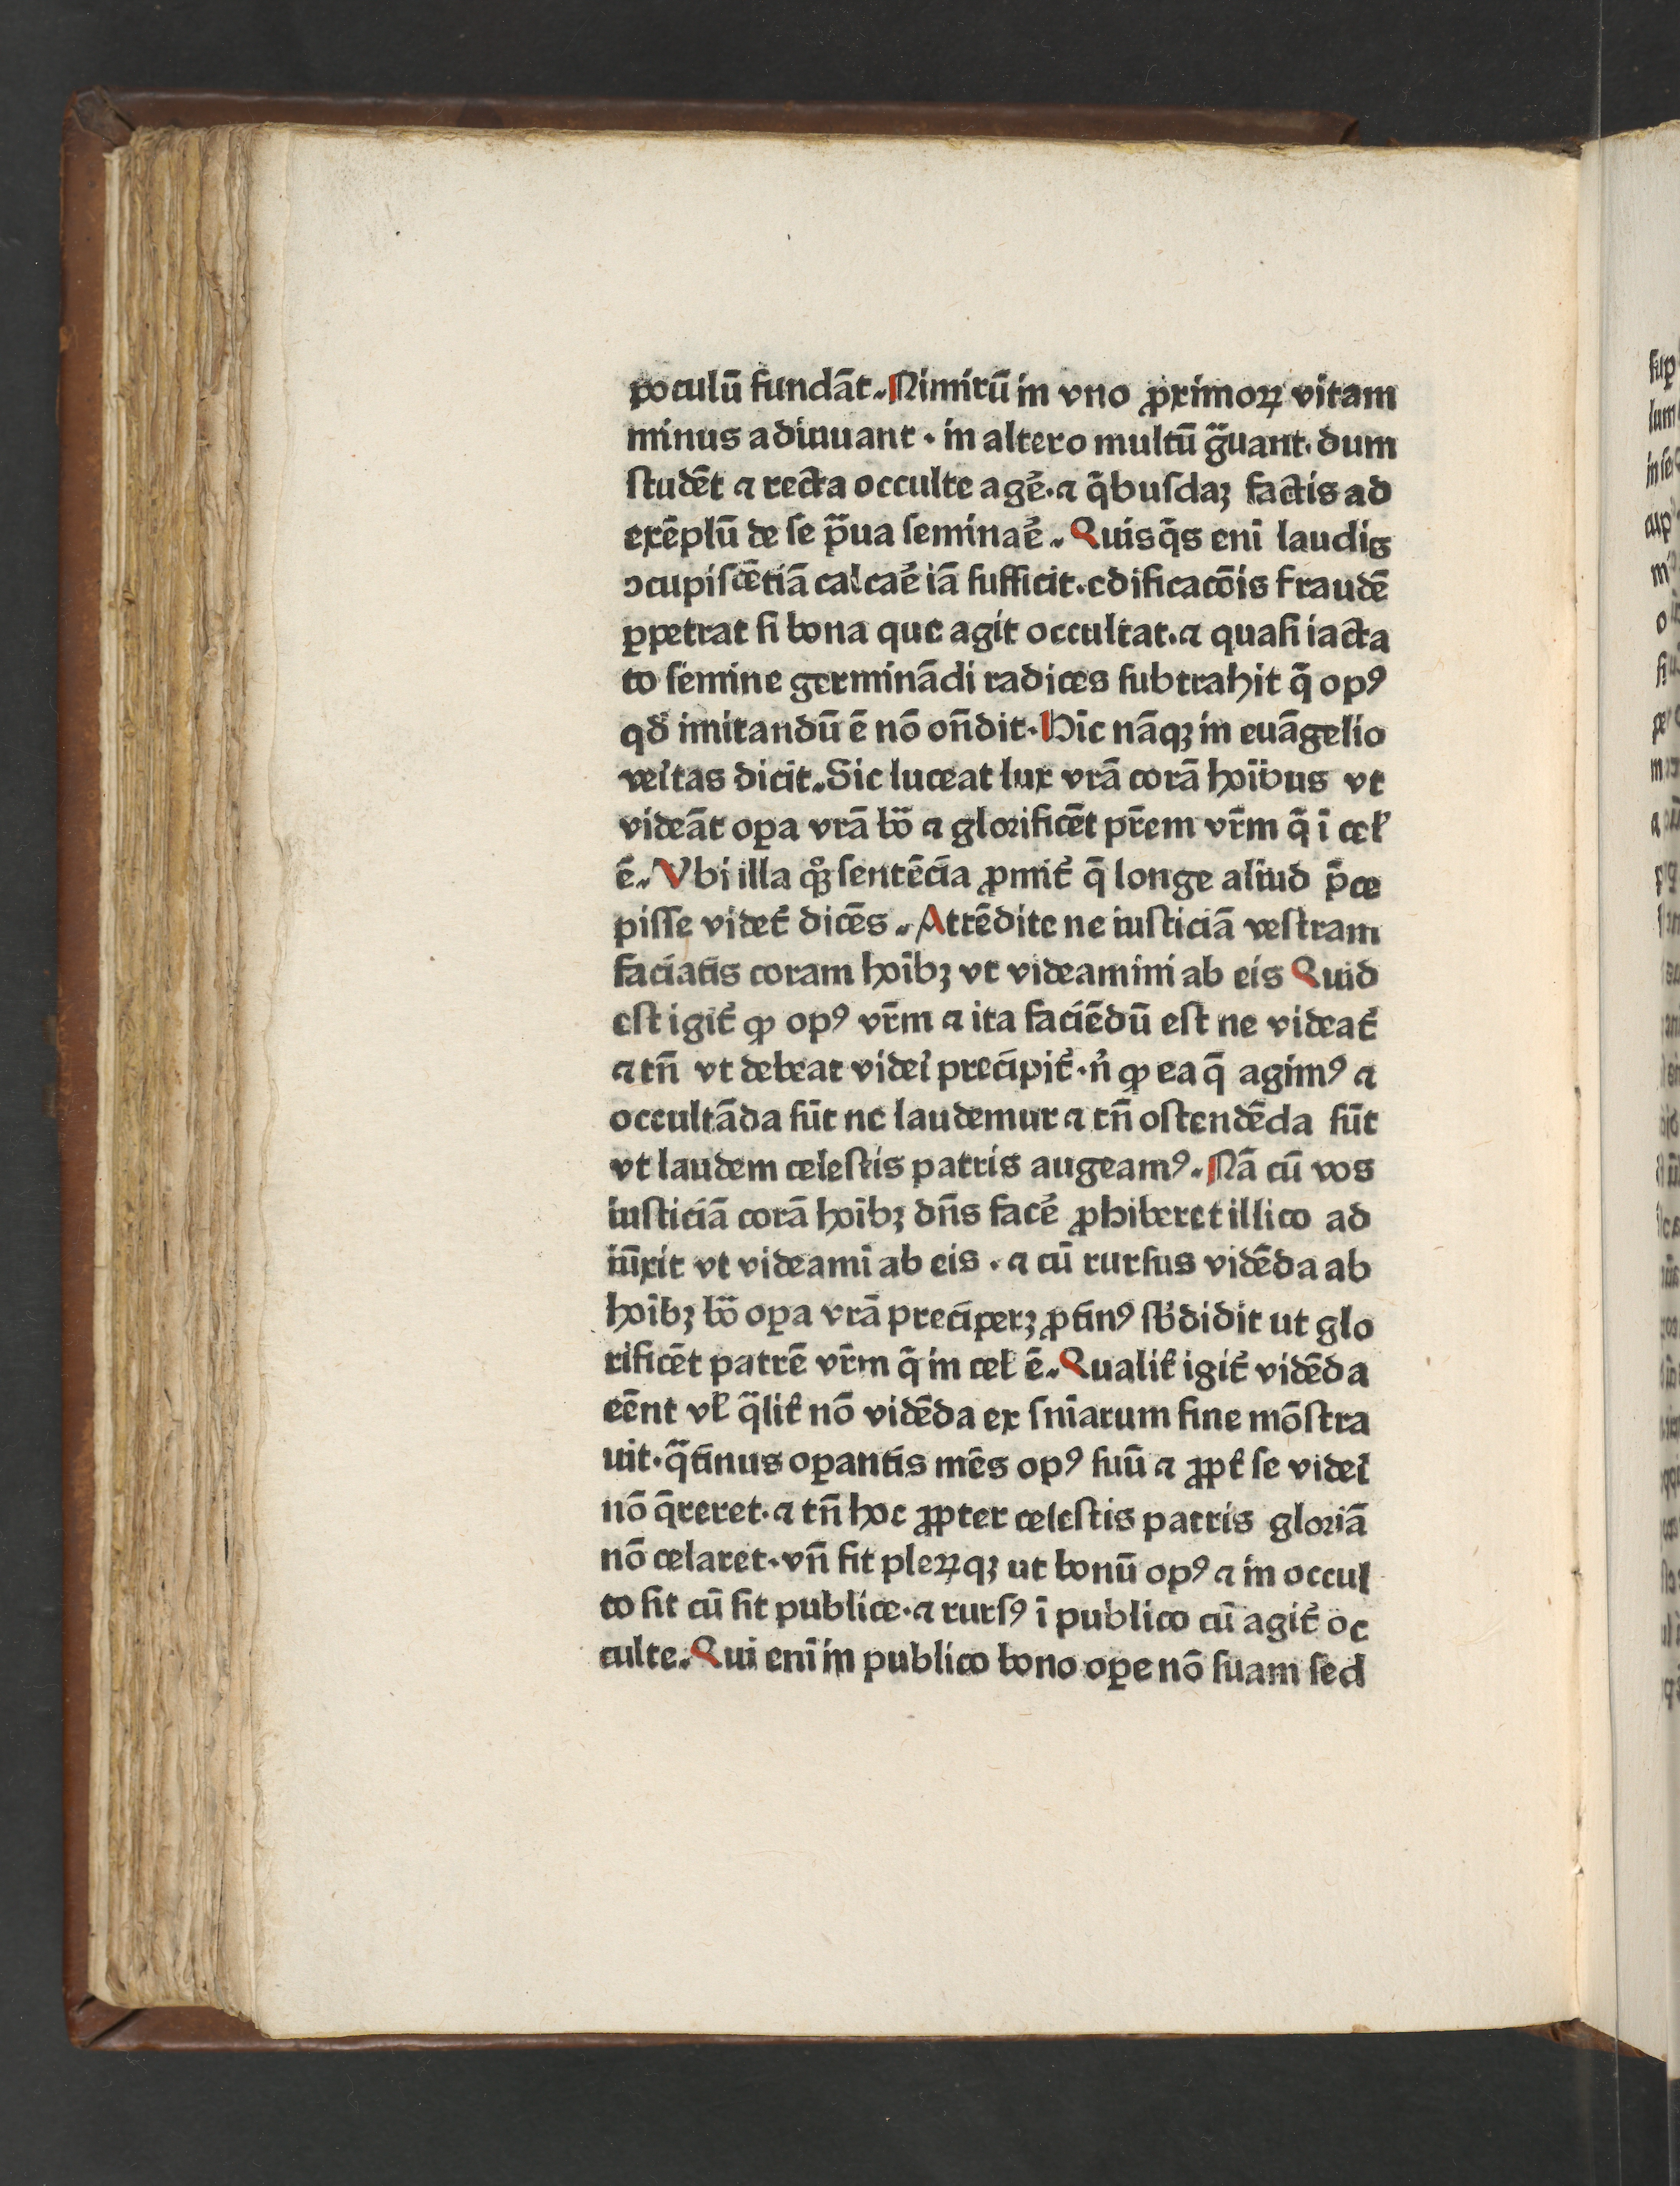 poculū fundāt. Nimirū in vno ꝓximoꝝ vitam
minus adiuuant · in altero multū gͣuant · dum
ſtudēt ⁊ recta occulte age᷑ · ⁊ q̄buſdaꝫ factis ad
exēplū de ſe pͣua ſeminae᷑. Quisq̄s eni laudis
ↄcupiſcētiā calcae᷑ iā ſufficit · edificacōis fraudē
ꝑpetrat ſi bona que agit occultat · ⁊ quaſi iacta
to ſemine germinādi radices ſubtrahit q̄ opꝰ
qd̓ imitandū ē nō on̄dit · Hic nāqꝫ in euāgelio
veritas dicit. Sic luceat lux vrā corā hoībus vt
videāt oꝑa vrā boͣ ⁊ glorificēt pr̄em vr̄m q̄ ī cel̓
ē. Vbi illa qꝫ ſentēcia ꝓmit᷑ q̄ longe aliud p̄ce
piſſe videt᷑ dicēs. Attēdite ne iuſticiā veſtram
faciatis coram hoībꝫ vt videamini ab eis Quid
eſt igit᷑ ꝙ opꝰ vr̄m ⁊ ita faciēdū eſt ne videat᷑
⁊ tn̄ vt debeat videri precipit᷑ · n̓ ꝙ ea q̄ agimꝰ ⁊
occultāda ſūt ne laudemur ⁊ tn̄ oſtendēda ſūt
vt laudem celeſtis patris augeamꝰ. Nā cū vos
iuſticiā corā hoībꝫ dn̄s face᷑ ꝓhiberet illico ad
iūxit vt videamī ab eis · ⁊ cū rurſus vidēda ab
hoībꝫ boͣ oꝑa vrā preciperꝫ ꝓtinꝰ ſb̓didit ut glo
rificēt patrē vr̄m q̄ in cel ē. Qualit᷑ igit᷑ vidēda
eēnt vl̓ qͣlit᷑ nō vidēda ex ſnīarum fine mōſtra
uit · qͣtinus oꝑantis mēs opꝰ ſuū ⁊ ꝓpt᷑ ſe videri
nō q̄reret · ⁊ tn̄ hoc ꝓpter celeſtis patris gloriā
nō celaret · vn̄ fit pleꝝqꝫ ut bonū opꝰ ⁊ in occul
to fit cū fit publice · ⁊ rurſꝰ ī publico cū agit᷑ oc
culte. Qui enī in publico bono oꝑe nō ſuam ſed